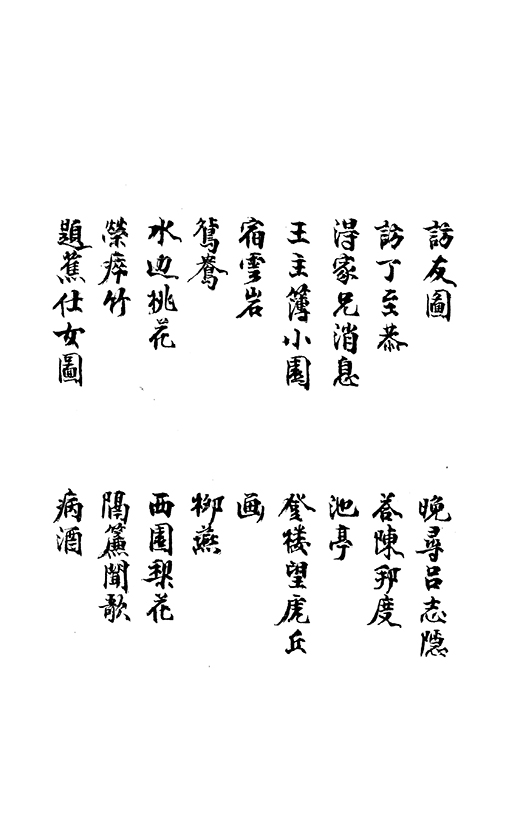 訪友圖
晚尋呂志隱
訪丁至恭
答陳邦度
得家兄消息
池亭
王主簿小園
登楼望虎丘
宿雲岩
画
鴛鴦
柳燕
水边桃花
西園梨花
榮瘁竹
隔簾聞歌
題蕉仕女圖
病酒